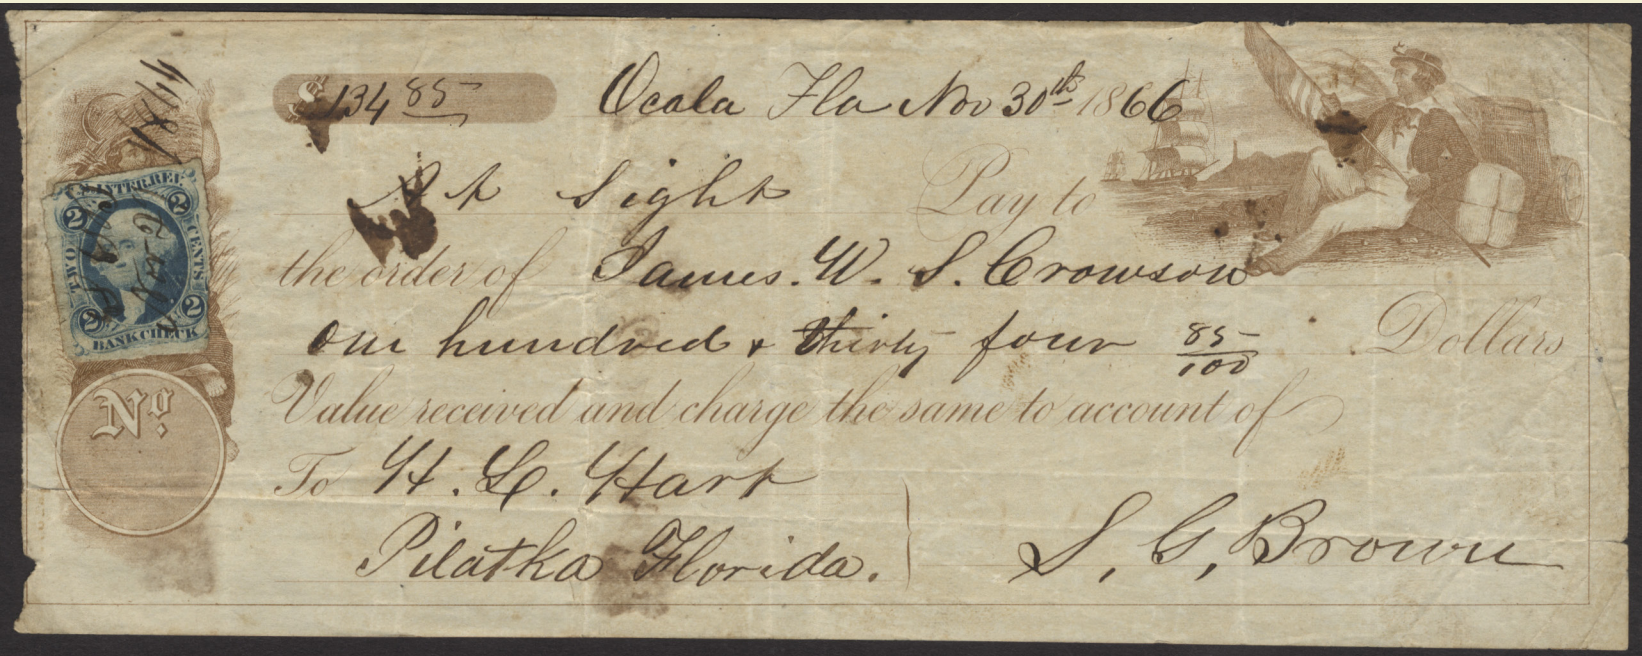 $ 134 85
Ocala Fla Nov 30th 1866
At Sight Pay to
the order of James. W. S. Crowson
One hundred & thirty four 85/100 Dollars
Value received and charge the same to account of
To H. L. Hart
Pilatka Florida.
S. G. Brown
No.
U.S. INTER. REV.
2 2
TWO CENTS
2 2
BANK CHECK